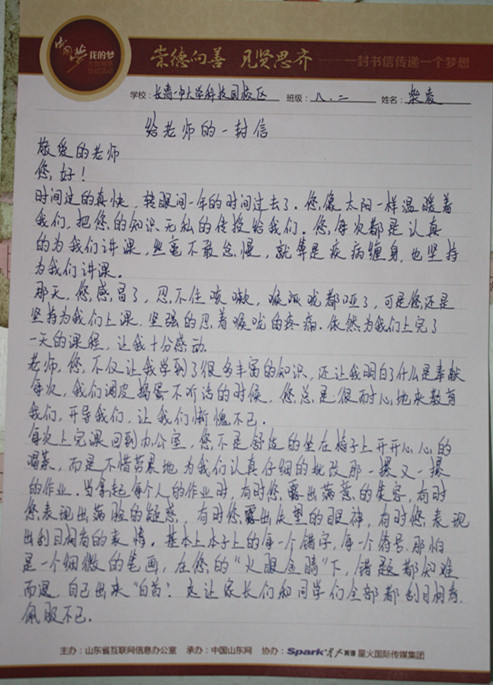 中国梦 我的梦
崇德向善 见贤思齐 一封书信传递一个梦想
学校: 长清中大学科技园校区 班级: 八.二 姓名: 柴
给老师的一封信
敬爱的老师
您,好!
时间过的真快,转眼间一年的时间过去了.您像太阳一样温暖着
我们,把您的知识无私的传授给我们.您,每次都是认真
的为我们讲课,丝毫不敢怠慢,就算是疾病缠身,也坚持
为我们讲课.
那天,您,感冒了,忍不住咳嗽,喉咙都哑了,可是您还是
坚持为我们上课.坚强的忍着喉咙的疼痛.依然为我们上完了
一天的课程,让我十分感动.
老师,您,不仅让我学到了很多丰富的知识,还让我明白了什么是奉献
每次,我们调皮捣蛋不听话的时候,您总是很耐心地来教育
我们,开导我们,让我们惭愧不已.
每次上完课回到办公室,您不是舒适的坐在椅子上开开心心的
喝茶,而是不惜劳累地为我们认真仔细的批改那一摞又一摞
的作业.当拿起每个人的作业时,有时您,露出满意的笑容,有时
您表现出满脸的疑惑,有时您露出失望的眼神,有时您表现
出刮目相看的表情,基本上本子上的每一个错字,每一个符号,那怕
是一个细微的笔画,在您的“火眼金睛”下,错题都知难
而退,自己出来“自首”.这让家长们和同学们全部都刮目相看.
佩服不已.
主办:山东省互联网信息办公室 承办:中国山东网 协办: Spark 星火英语 星火国际传媒集团